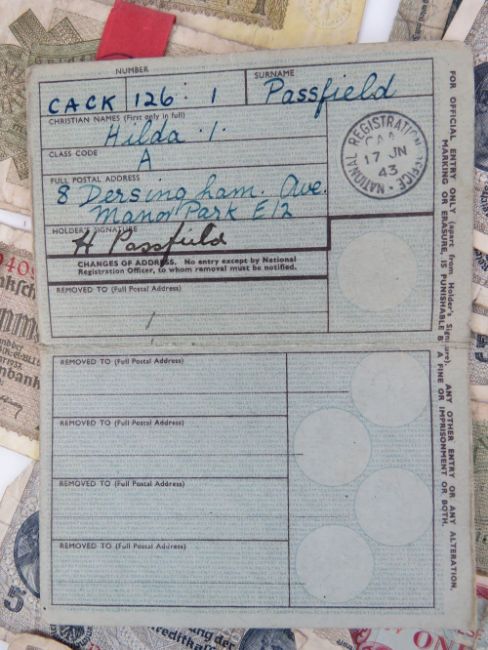 NUMBER
SURNAME
CACK 126 : 1
Passfield
CHRISTIAN NAMES (First only in full)
Hilda . I.
CLASS CODE
A
FULL POSTAL ADDRESS
8 Dersingham. Ave.
Manor Park E12
HOLDER'S SIGNATURE
H Passfield
NATIONAL REGISTRATION OFFICE
17 JN
43
CHANGES OF ADDRESS. No entry except by National
Registration Officer, to whom removal must be notified.
REMOVED TO (Full Postal Address)
REMOVED TO (Full Postal Address)
REMOVED TO (Full Postal Address)
REMOVED TO (Full Postal Address)
REMOVED TO (Full Postal Address)
FOR OFFICIAL ENTRY ONLY (apart from Holder's Signature). ANY OTHER ENTRY OR ANY ALTERATION,
MARKING OR ERASURE, IS PUNISHABLE BY A FINE OR IMPRISONMENT OR BOTH.
5
5
ONE